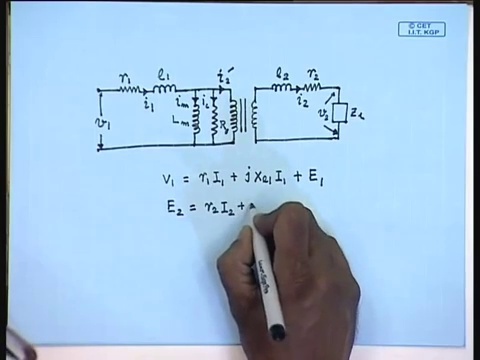 © CET
I.I.T. KGP
r₁ l₁ i₂′ l₂ r₂
i₁ iₘ i₂
v₁ Lₘ v₂ Z_L
V₁ = r₁I₁ + jXₗ₁I₁ + E₁
E₂ = r₂I₂ +